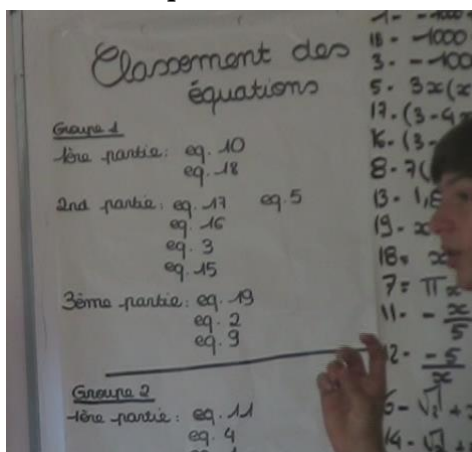 Classement des
équations
Groupe 1
1ère partie: eq. 10
eq. 18
2nd partie: eq. 17 eq. 5
eq. 16
eq. 3
eq. 15
3ème partie: eq. 19
eq. 2
eq. 9
Groupe 2
1ère partie: eq. 11
eq. 4
18 - -1000
3 - -100
5 - 3x(x
17 - (3-4x
16 - (3-
8 - 7(
13 - 1,6
19 - x
18 =
7 = πx
11 - - x/5
12 - -5/x
14 - √2 +